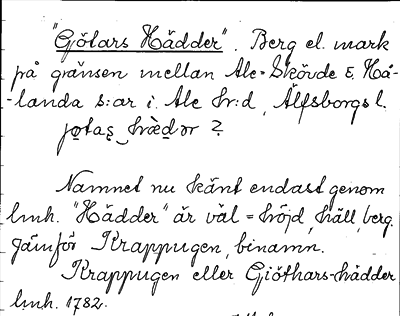 "Götars Hädder". Berg el. mark
på gränsen mellan Ale-Skövde o. Hå-
-landa s:ar i Ale hr:d, Älfsborgs l.
jøtaṣ hæ̀dər 2
Namnet nu känt endast genom
lmh. "Hädder" är väl = höjd, häll, berg.
Jämför Krappugen, binamn.
Krappugen eller Giöthars-hädder
lmh. 1782.